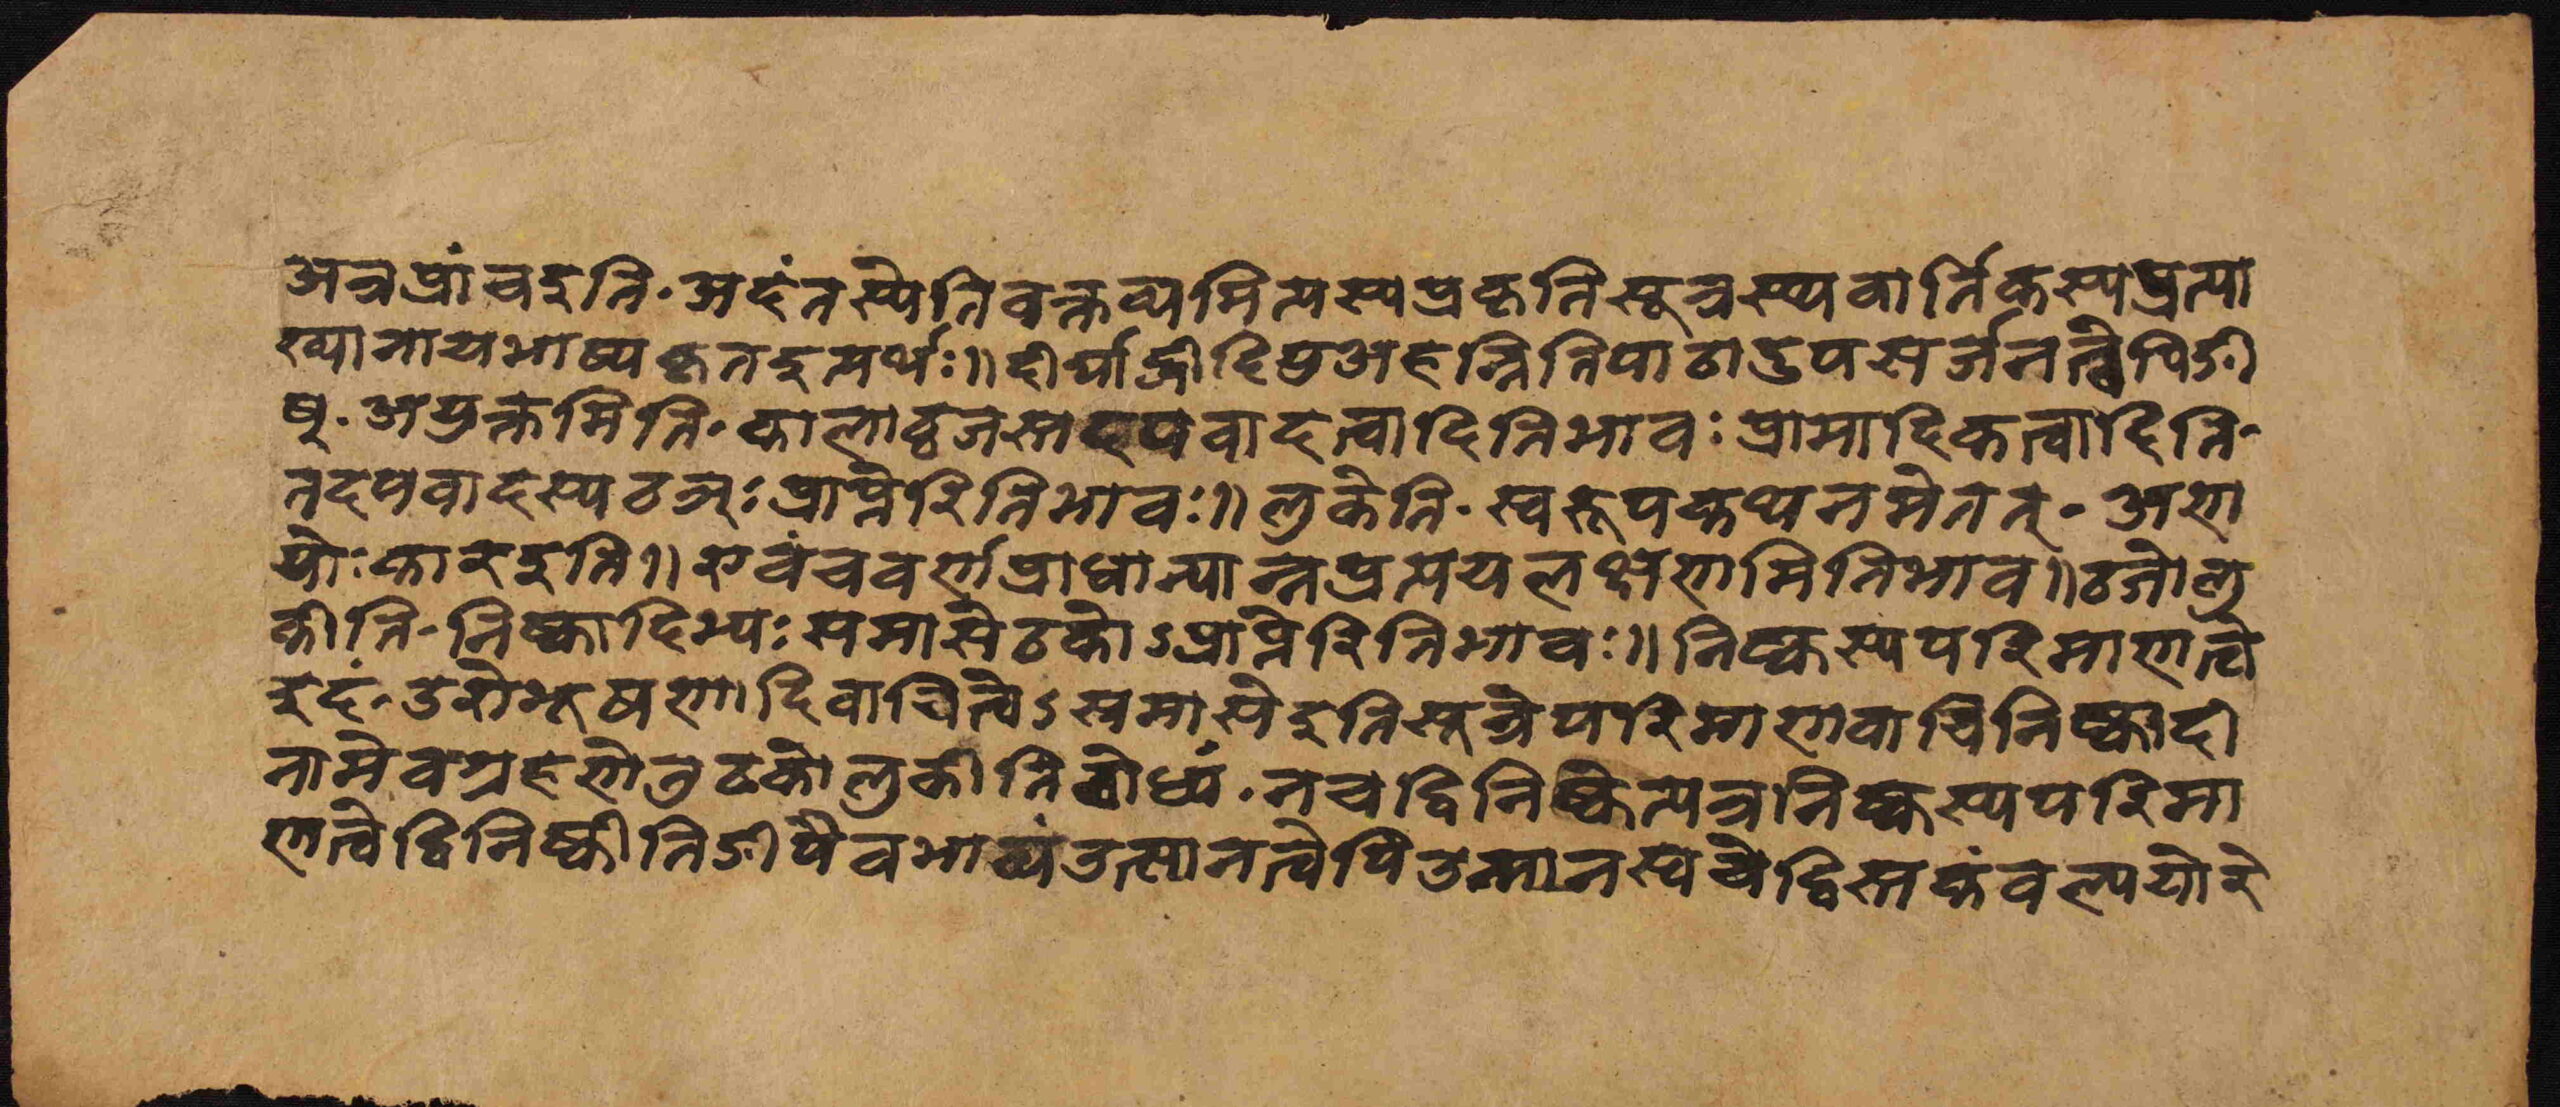 अत्रप्रांचइति॰अदंतस्येतिवक्तव्यमित्यस्यप्रकृतिसूत्रस्यवार्तिकस्यप्रत्या
ख्यानायभाष्यकृतइत्यर्थः॥दीर्घाङ्गीदिषुअहन्नितिपाठादुपसर्जनत्वेपिङी
ष्॰अयुक्तमिति॰कालाट्ठञस्तदपवादत्वादितिभावः प्रामादिकत्वादिति॰
तदपवादस्यठञ्ःप्राप्तेरितिभावः॥लुकेति॰स्वरूपकथनमेतत्॰अणा
योःकारइति॥एवंचवर्णप्राधान्यान्नप्रत्ययलक्षणमितिभाव॥ठञोलु
कीति॰निष्कादिभ्यःसमासेठकोऽप्राप्तेरितिभावः॥निष्कस्यपरिमाणत्वे
इदं॰उरोभूषणादिवाचित्वेऽसमासेइतिसूत्रेपरिमाणवाचिनिष्कादी
नामेवग्रहणेतुठकोलुकीतिबोध्यं॰नचद्विनिष्केत्यत्रनिष्कस्यपरिमा
णत्वेद्विनिष्कीतिङीपैवभाव्यंउन्मानत्वेपिउन्मानस्यचेद्विस्तकंबल्ययोरे